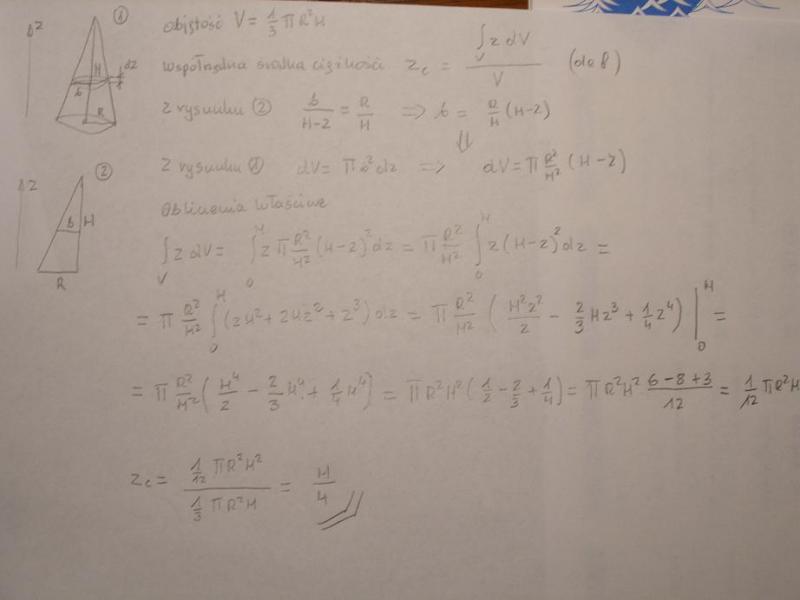 objętość V = 1/3 πR²H
współrzędna środka ciężkości z_c = ∫_V z dV / V (def)
z rysunku ② b/(H-z) = R/H ⇒ b = R/H (H-z)
⇓
z rysunku ① dV = πb²dz ⇒ dV = π R²/H² (H-z)
Obliczenia właściwe
∫_V z dV = ∫_0^H z π R²/H² (H-z)² dz = π R²/H² ∫_0^H z(H-z)² dz =
= π R²/H² ∫_0^H (zH² + 2Hz² + z³) dz = π R²/H² (H²z²/2 - 2/3 Hz³ + 1/4 z⁴) |_0^H =
= π R²/H² (H⁴/2 - 2/3 H⁴ + 1/4 H⁴) = πR²H² (1/2 - 2/3 + 1/4) = πR²H² (6-8+3)/12 = 1/12 πR²H
z_c = (1/12 πR²H²) / (1/3 πR²H) = H/4
z
①
H
dz
b
R
z
②
b
H
R